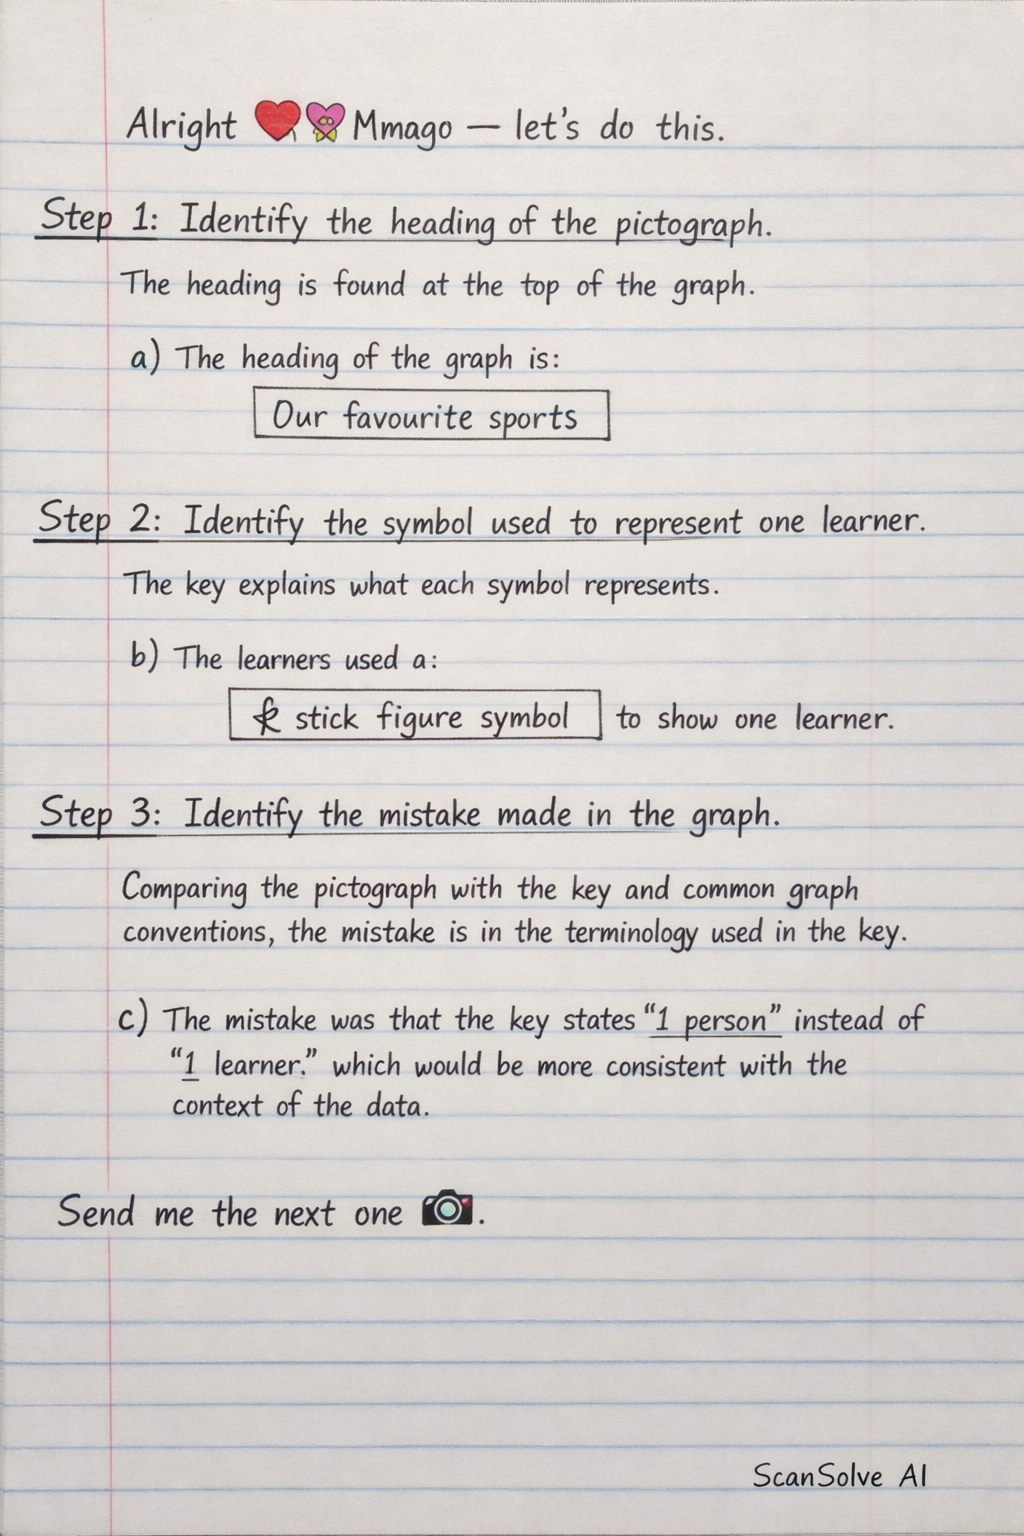 Alright ❤️💝 Mmago — let's do this.
Step 1: Identify the heading of the pictograph.
The heading is found at the top of the graph.
a) The heading of the graph is:
Our favourite sports
Step 2: Identify the symbol used to represent one learner.
The key explains what each symbol represents.
b) The learners used a:
stick figure symbol to show one learner.
Step 3: Identify the mistake made in the graph.
Comparing the pictograph with the key and common graph
conventions, the mistake is in the terminology used in the key.
c) The mistake was that the key states "1 person" instead of
"1 learner." which would be more consistent with the
context of the data.
Send me the next one 📷.
ScanSolve AI